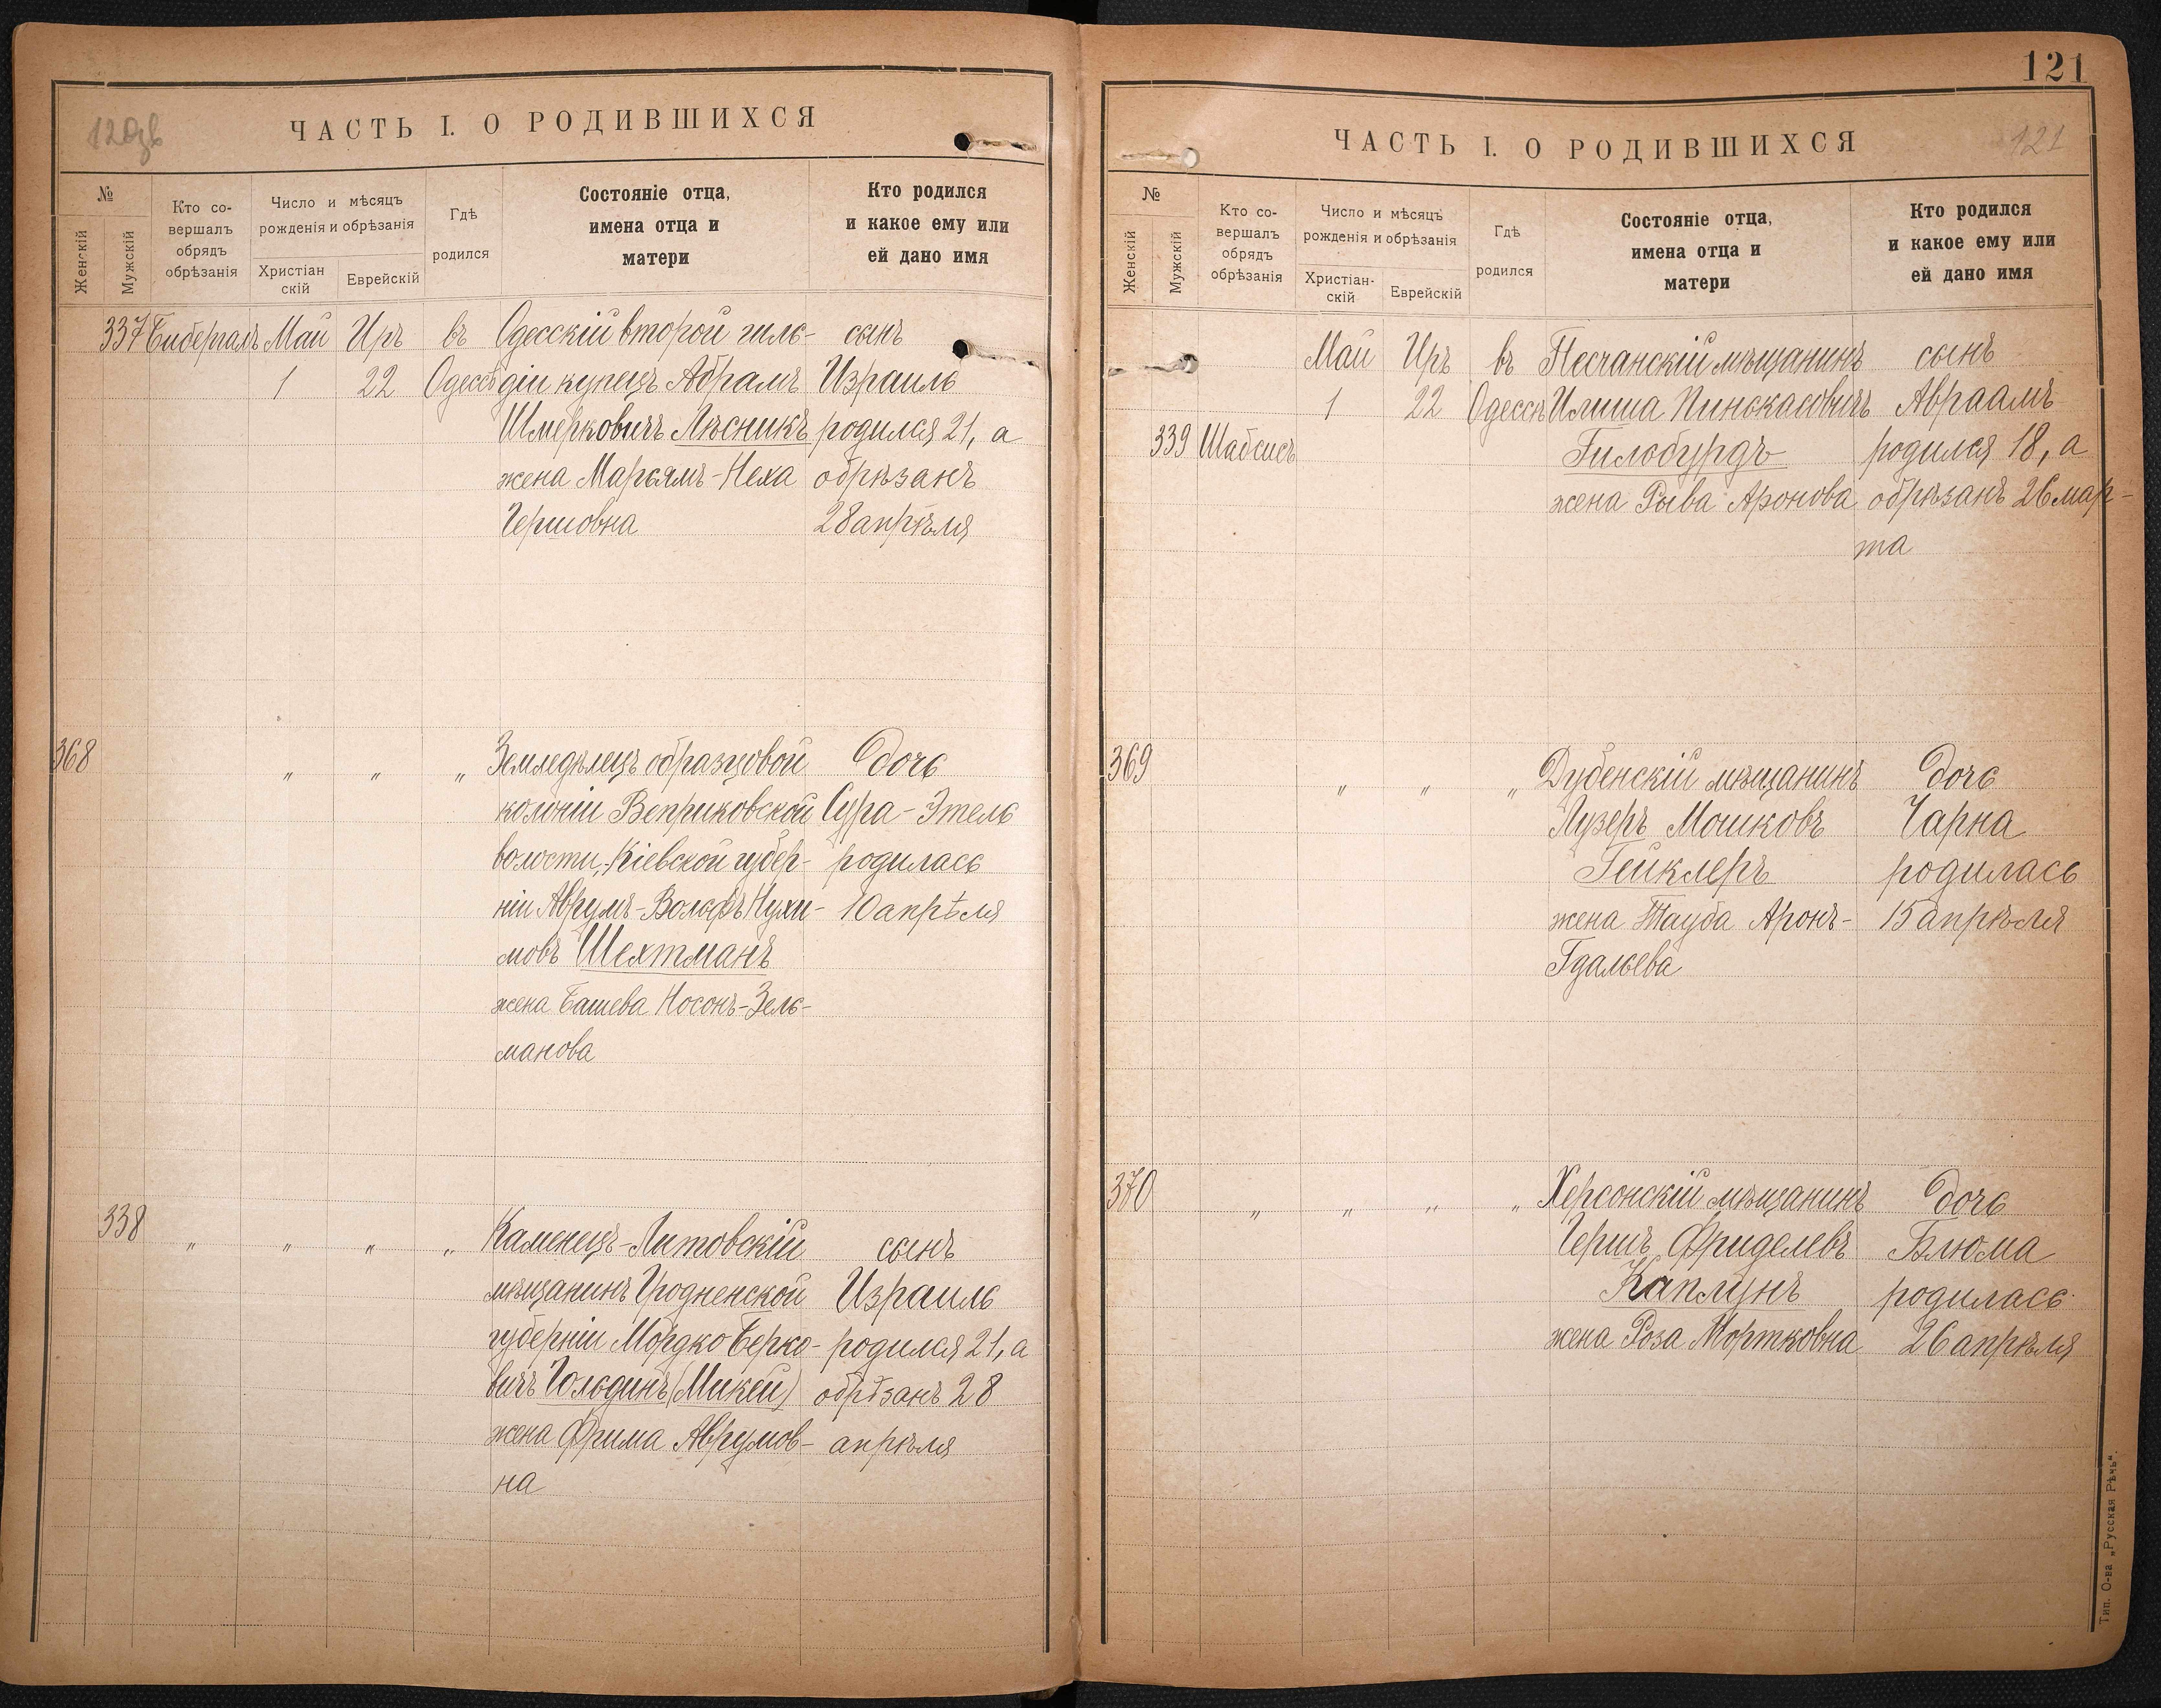 120об
ЧАСТЬ I. О РОДИВШИХСЯ
№
Женскій
Мужскій
Кто со-
вершалъ
обрядъ
обрѣзанія
Число и мѣсяцъ
рожденія и обрѣзанія
Христіан
скій
Еврейскій
Гдѣ
родился
Состояніе отца,
имена отца и
матери
Кто родился
и какое ему или
ей дано имя
337 Бибергалъ Май Иръ въ Одесскій второй гиль- сынъ
1 22 Одессѣ діи купецъ Абрамъ Израиль
Шмерковичъ Лѣсникъ родился 21, а
жена Марьямъ-Неха обрѣзанъ
Гершовна 28 апрѣля
368 " " " Земледѣлецъ образцовой дочь
колоніи Веприковской Сура-Этель
волости, Кіевской губер- родилась
ніи Аврумъ-Вольфъ Нухи- 10 апрѣля
мовъ Шехтманъ
жена Башева Носонъ-Зель-
манова
338 " " " " Каменецъ-Литовскій сынъ
мѣщанинъ Гродненской Израиль
губерніи Мордко Берко- родился 21, а
вичъ Гольдинъ (Микей) обрѣзанъ 28
жена Фрима Аврумов- апрѣля
на
121
ЧАСТЬ I. О РОДИВШИХСЯ
121
№
Женскій
Мужскій
Кто со-
вершалъ
обрядъ
обрѣзанія
Число и мѣсяцъ
рожденія и обрѣзанія
Христіан-
скій
Еврейскій
Гдѣ
родился
Состояніе отца,
имена отца и
матери
Кто родился
и какое ему или
ей дано имя
Май Иръ въ Песчанскій мѣщанинъ сынъ
1 22 Одессѣ Илиша Пинскасовичъ Авраамъ
339 Шабсисъ Гилобурдъ родился 18, а
жена Рыва Аронова обрѣзанъ 26 мар-
та
369 " " " Дубенскій мѣщанинъ дочь
Лузеръ Мошковъ Чарна
Гейклеръ родилась
жена Тауба Аронъ- 15 апрѣля
Гдальева
370 " " " " Херсонскій мѣщанинъ дочь
Гершъ Фриделевъ Блюма
Каплунъ родилась
жена Роза Мортковна 26 апрѣля
Тип. О-ва „Русская Рѣчь“.